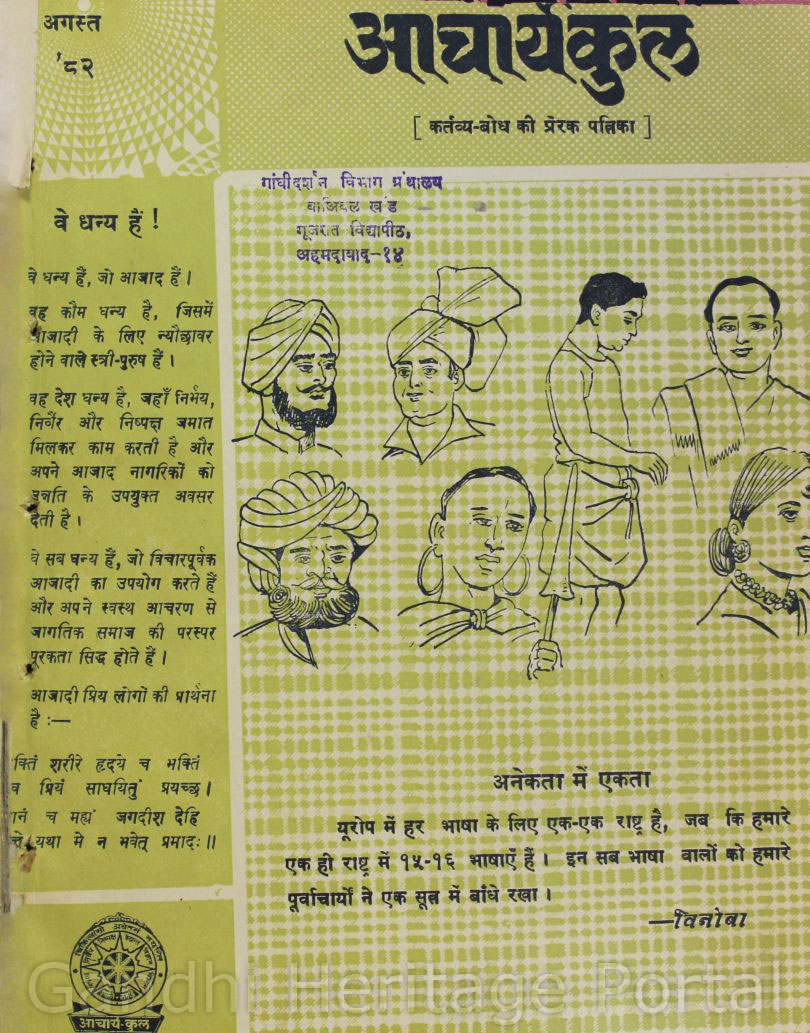 अगस्त
'८२
आचार्यकुल
[ कर्तव्य-बोध की प्रेरक पत्रिका ]
गांधीदर्शन विभाग ग्रंथालय
खंड
गूजरात विद्यापीठ,
अहमदाबाद-१४
वे धन्य हैं !
वे धन्य हैं, जो आजाद हैं ।
वह कौम धन्य है, जिसमें
आजादी के लिए न्यौछावर
होने वाले स्त्री-पुरुष हैं ।
वह देश धन्य है, जहाँ निर्भय,
निर्वैर और निष्पक्ष जमात
मिलकर काम करती है और
अपने आजाद नागरिकों को
उन्नति के उपयुक्त अवसर
देती है ।
वे सब धन्य हैं, जो विचारपूर्वक
आजादी का उपयोग करते हैं
और अपने स्वस्थ आचरण से
जागतिक समाज की परस्पर
पूरकता सिद्ध होते हैं ।
आजादी प्रिय लोगों की प्रार्थना
है :—
क्तिं शरीरे हृदये च भक्तिं
प्रियं साधयितुं प्रयच्छ ।
च मह्यं जगदीश देहि
यथा मे न भवेत् प्रमादः ॥
अनेकता में एकता
यूरोप में हर भाषा के लिए एक-एक राष्ट्र है, जब कि हमारे
एक ही राष्ट्र में १५-१६ भाषाएँ हैं । इन सब भाषा वालों को हमारे
पूर्वाचार्यों ने एक सूत्र में बाँधे रखा ।
—विनोबा
आचार्य-कुल
Gandhi Heritage Portal